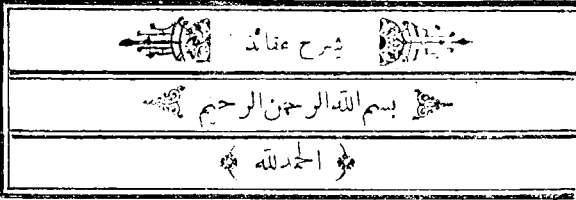 شرح عقائد
بسم الله الرحمن الرحيم
﴿ الحمد لله ﴾